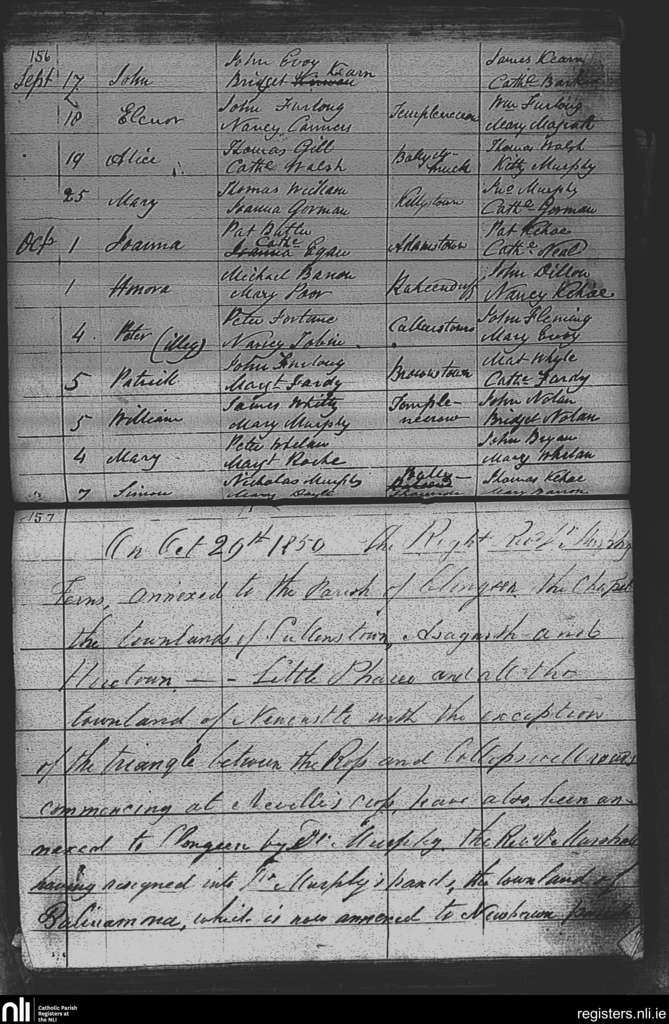 156
Sept 17 John John Evoy James Kearn
Bridget Kearn Cathe
18 Elenor John Furlong Wm Furlong
Nancy Mary Magrath
19 Alice Thomas Gill Thomas Walsh
Cathe Walsh Kitty Murphy
25 Mary Thomas Jno Murphy
Joanna Gorman Cathe Gorman
Octr 1 Joanna Pat Butler Adamstown Pat Kehoe
Cathe Egan Cathe Neal
1 Honora Michael Barron John Dillon
Mary Poor Nancy Kehoe
4 Peter (illeg) Peter Fortune Cullenstown John Fleming
Nancy Tobin Mary Evoy
5 Patrick John Furlong Brownstown Mat Whyte
Margt Fardy Cathe Fardy
5 William James Whitty Temple- John Nolan
Mary Murphy Bridget Nolan
4 Mary Peter Whelan John Bryan
Margt Roche Mary Whelan
7 Simon Nicholas Murphy Bally Thomas Kehoe
Mary Doyle Mary Barron
157
On Oct 29th 1850 the Right Revd Dr Murphy
Ferns, annexed to the Parish of Clongeen the Chapel
the townlands of Cullenstown, and
Horetown — - Little and all the
townland of Newcastle with the exception
of the triangle between the Ross and roads
commencing at Neville's cross, have also been an-
nexed to Clongeen by Dr Murphy. the Revd Marshall
having resigned into Dr Murphy's hands, the townland of
which is now annexed to Newbawn parish
nli Catholic Parish
Registers at
the NLI
registers.nli.ie